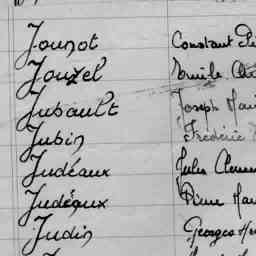 Jounot Constant
Jouzel Emile
Jubault Joseph
Jubin Frédéric
Judéaux Jules
Judéaux Pierre
Judin Georges